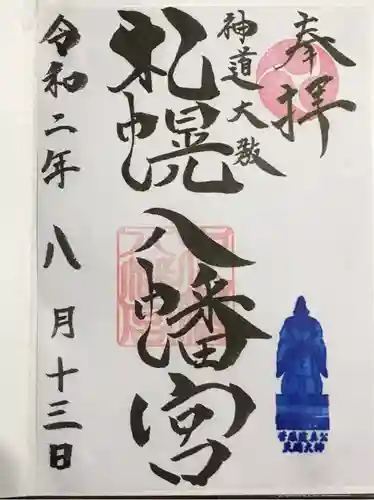 奉拝
神道大教
札幌
八幡宮
令和二年 八月十三日